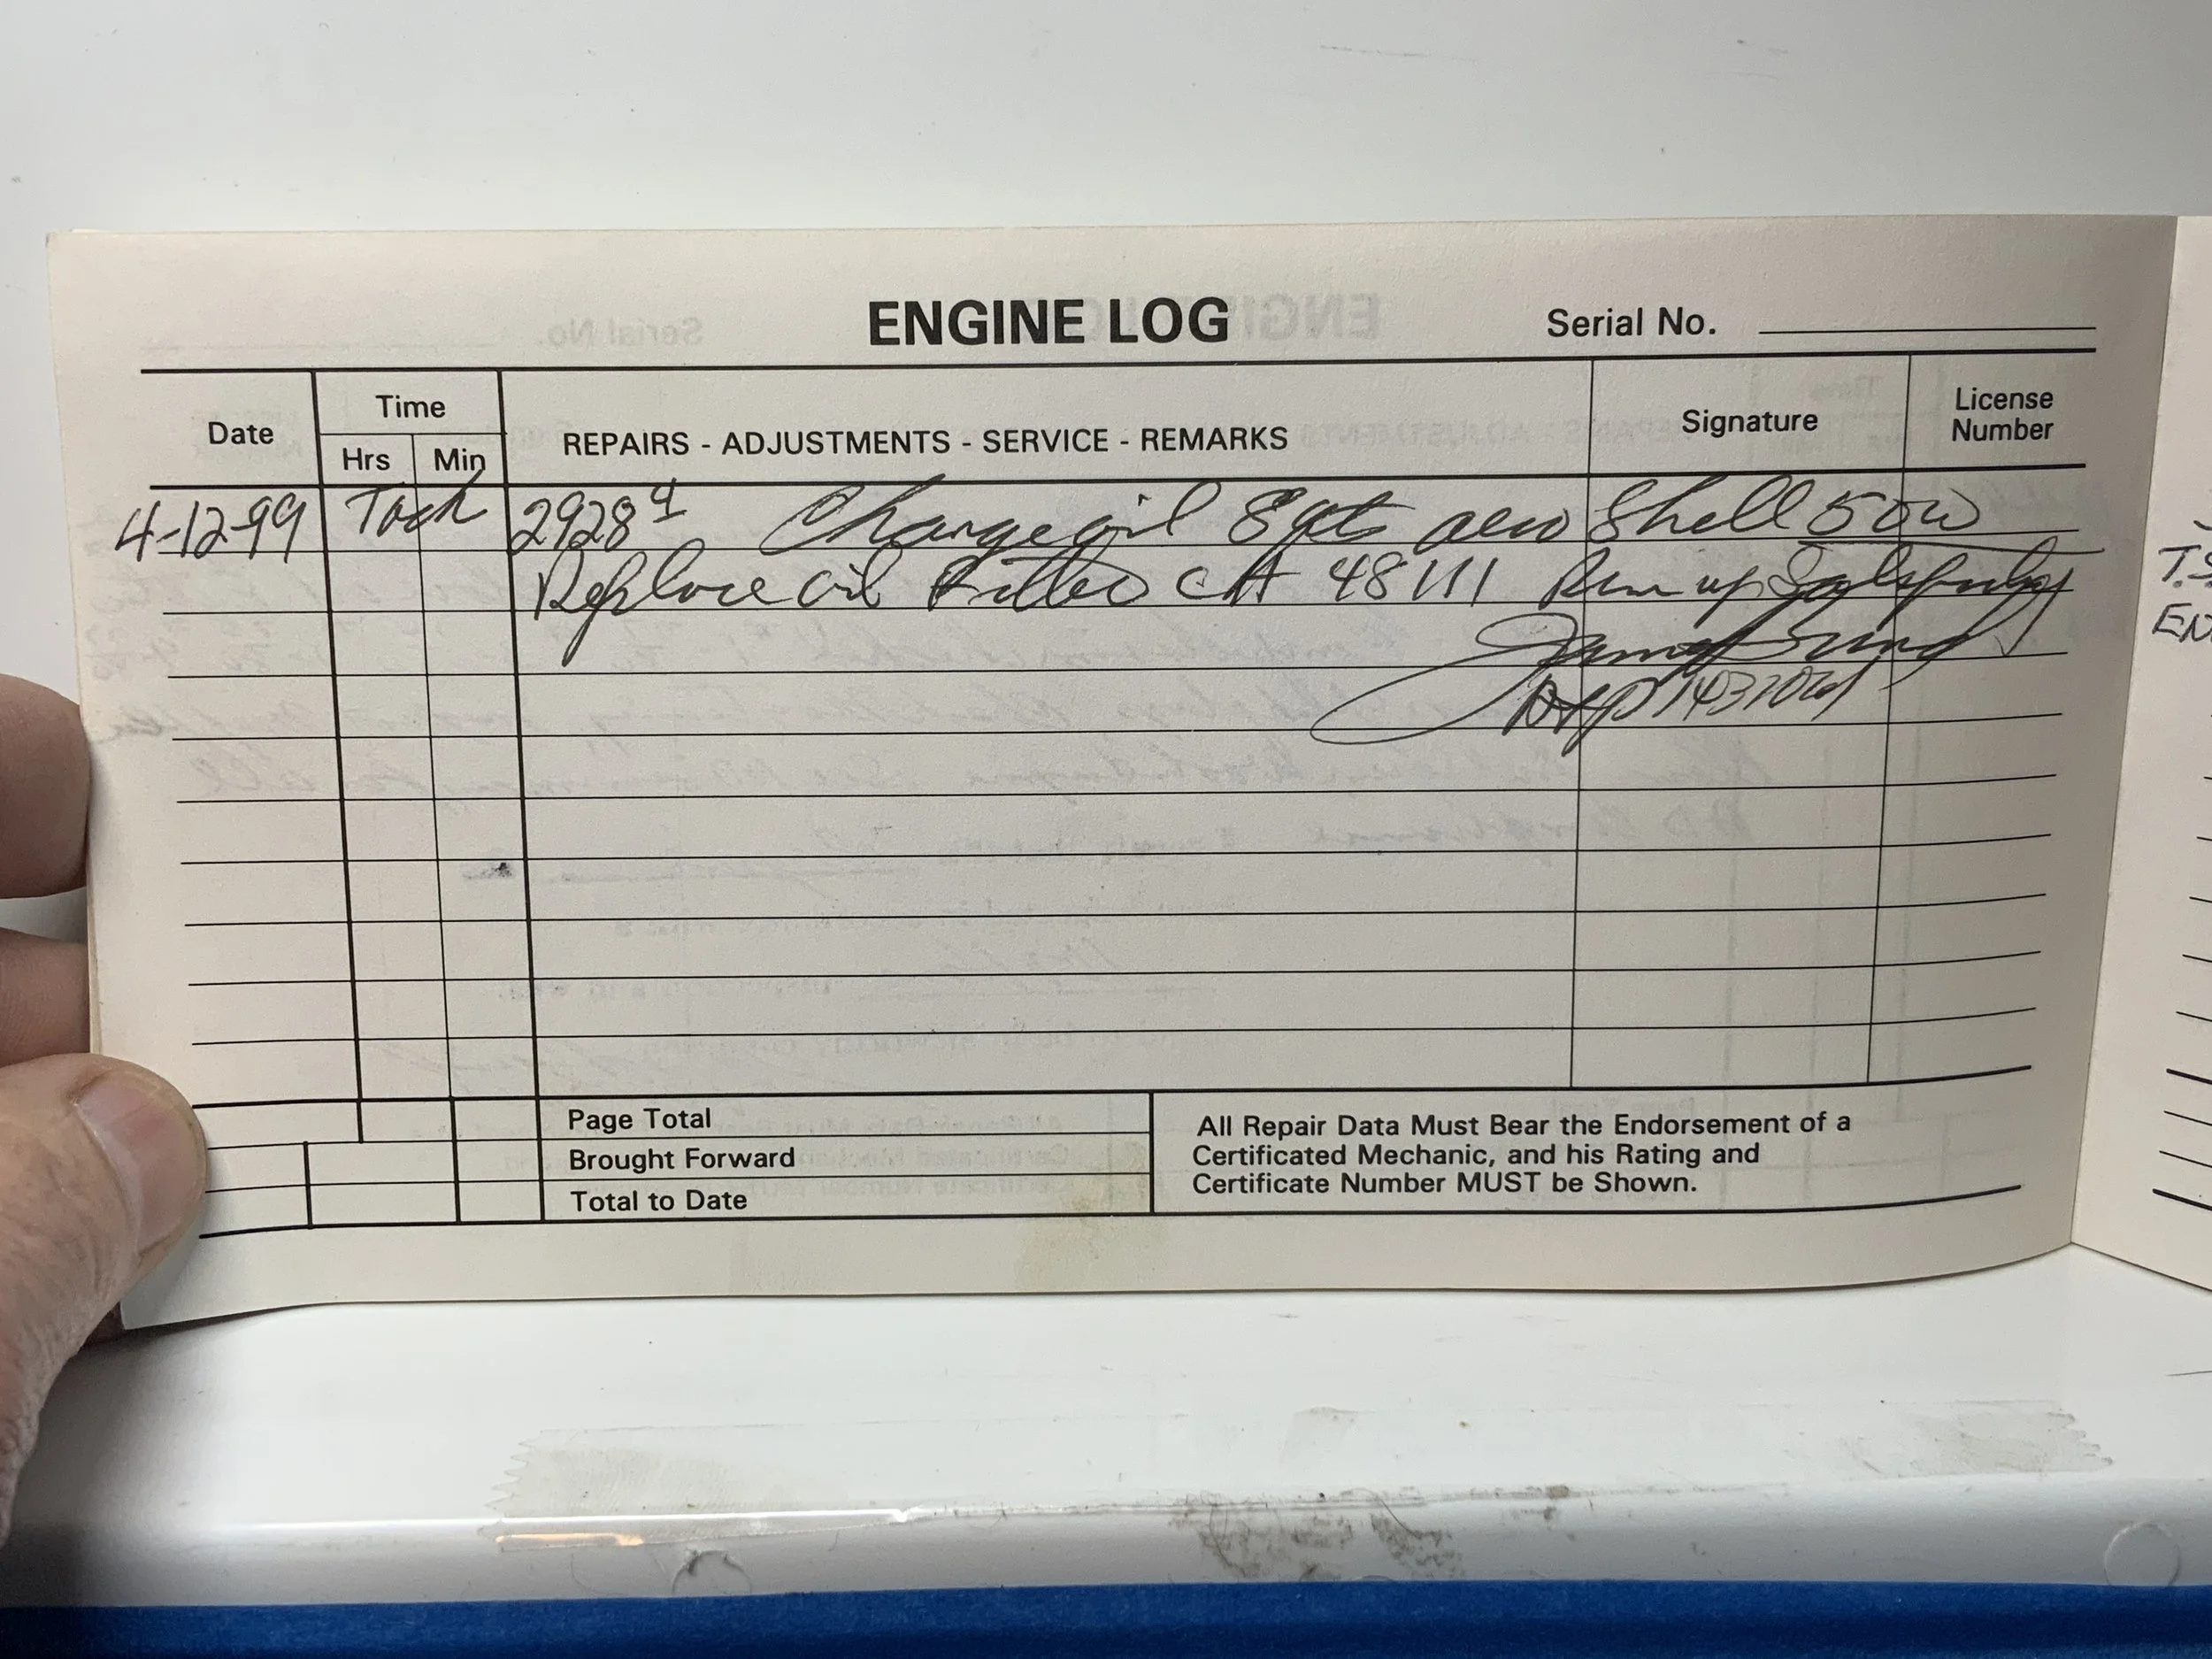 ENGINE LOG
Serial No.
Date
Time
Hrs Min
REPAIRS - ADJUSTMENTS - SERVICE - REMARKS
Signature
License
Number
4-12-99 Tach 2928 Change oil 8 qts aero Shell 50W
Replace oil Filter CA 48111 Run up
A&P
Page Total
Brought Forward
Total to Date
All Repair Data Must Bear the Endorsement of a
Certificated Mechanic, and his Rating and
Certificate Number MUST be Shown.
T.S
EN